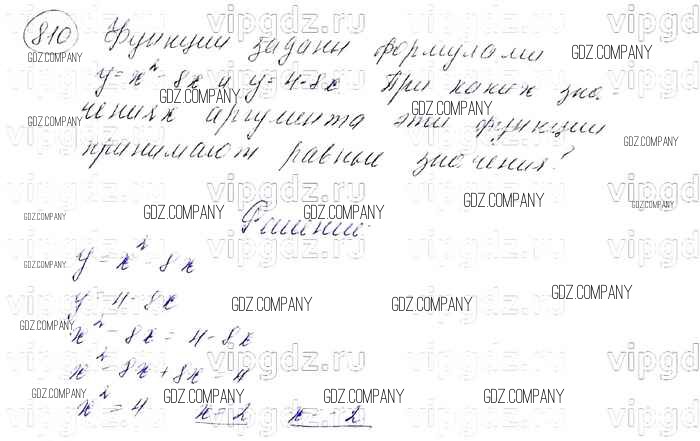 810 Функции заданы формулами
y = x² - 8x и y = 4 - 8x При каких зна-
чениях аргумента эти функции
принимают равные значения?
Решение:
y = x² - 8x
y = 4 - 8x
x² - 8x = 4 - 8x
x² - 8x + 8x = 4
x² = 4   x = 2   x = -2
GDZ.COMPANY
vipgdz.ru